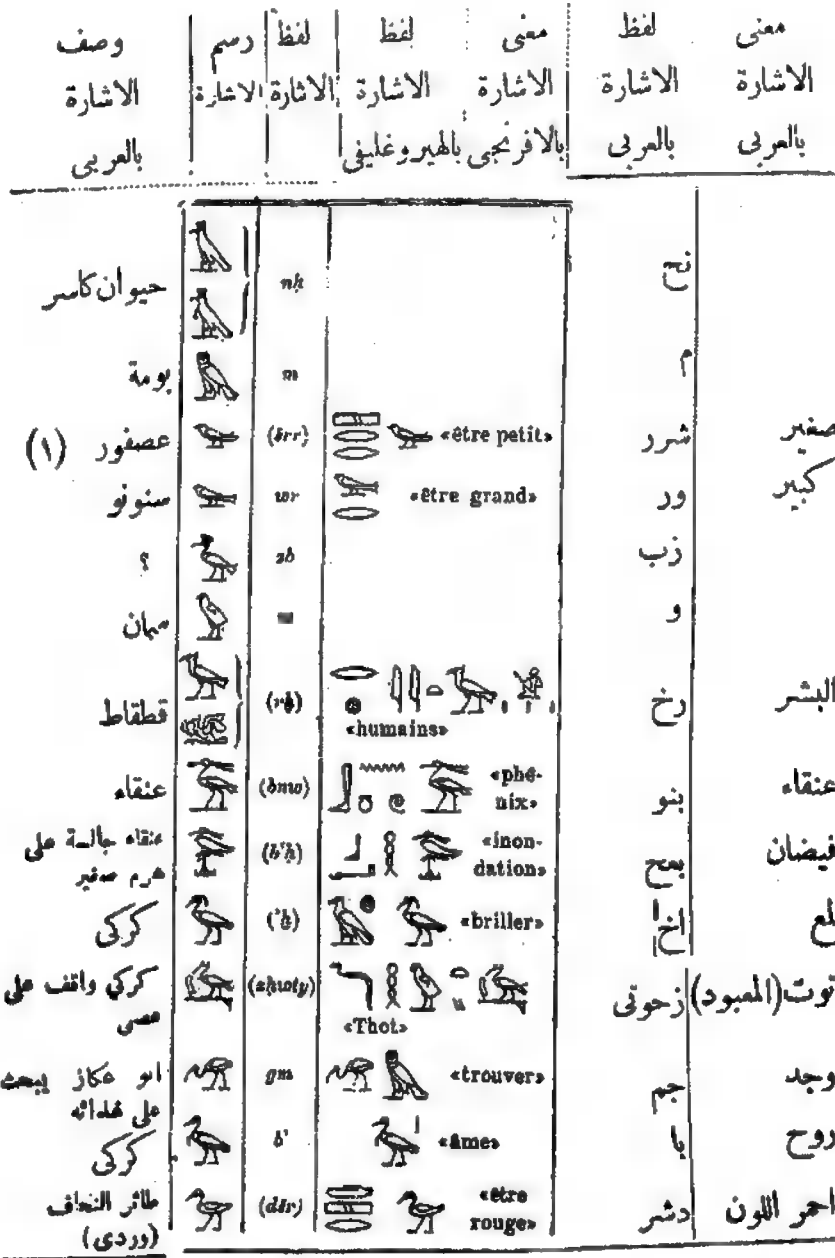 معنى الاشارة بالعربى | لفظ الاشارة بالعربى | معنى الاشارة بالافرنجى | لفظ الاشارة بالهيروغليفى | لفظ الاشارة | رسم الاشارة | وصف الاشارة بالعربى
نح | nḥ | حيوان كاسر
م | m | بومة
صغير | شرر | «être petit» | (šrr) | عصفور (١)
كبير | ور | «être grand» | wr | سنونو
زب | zb | ؟
و | سمان
البشر | رخ | «humains» | (rḫ) | قطقاط
عنقاء | بنو | «phé-nix» | (bnw) | عنقاء
فيضان | بعح | «inon-dation» | (b'ḥ) | عنقاء جالسة على هرم صغير
لمع | اخ | «briller» | ('ḫ) | كركى
توت (المعبود) | زحوتى | «Thot» | (zḥwty) | كركي واقف على عصى
وجد | جم | «trouver» | gm | ابو عكاز يبحث على غذائه
روح | با | «âme» | b' | كركى
احمر اللون | دشر | «être rouge» | (dšr) | طائر النحاف (وردى)